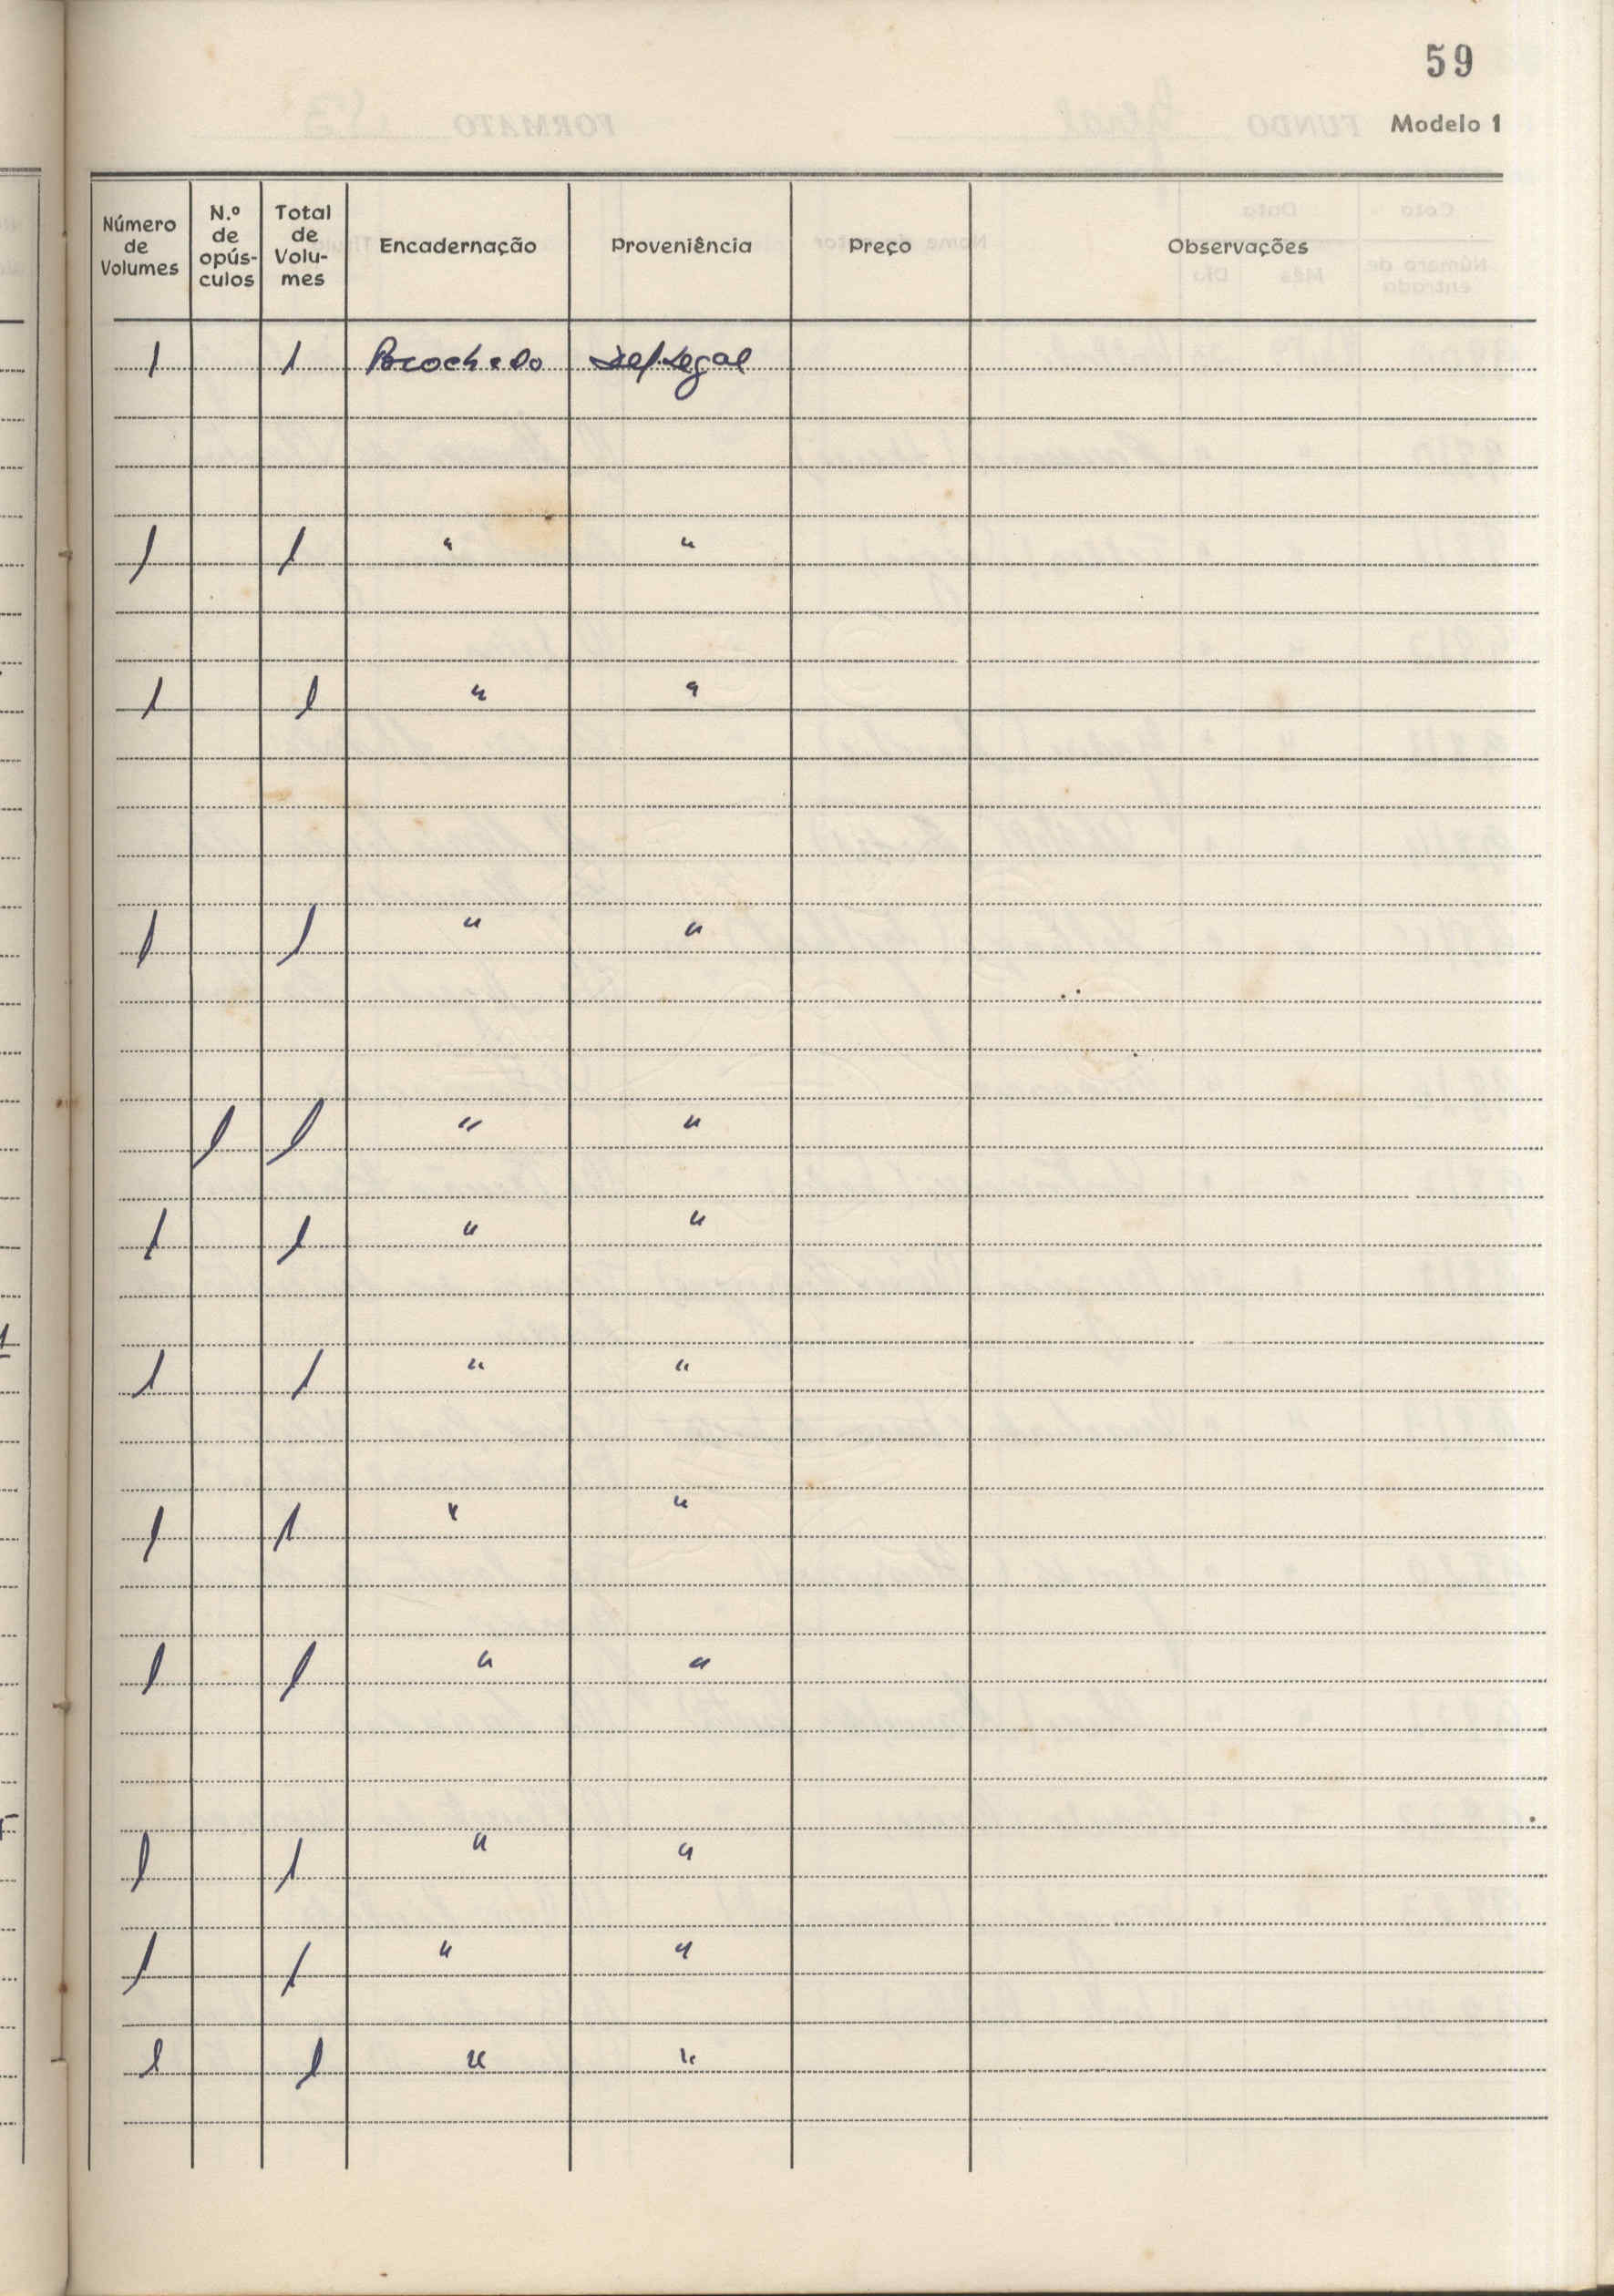 59
Modelo 1
Número de Volumes | N.º de opús-culos | Total de Volu-mes | Encadernação | Proveniência | Preço | Observações
1 | | 1 | Brochado | Dep. Legal
1 | | 1 | " | "
1 | | 1 | " | "
1 | | 1 | " | "
| 1 | 1 | " | "
1 | | 1 | " | "
1 | | 1 | " | "
1 | | 1 | " | "
1 | | 1 | " | "
1 | | 1 | " | "
1 | | 1 | " | "
1 | | 1 | " | "